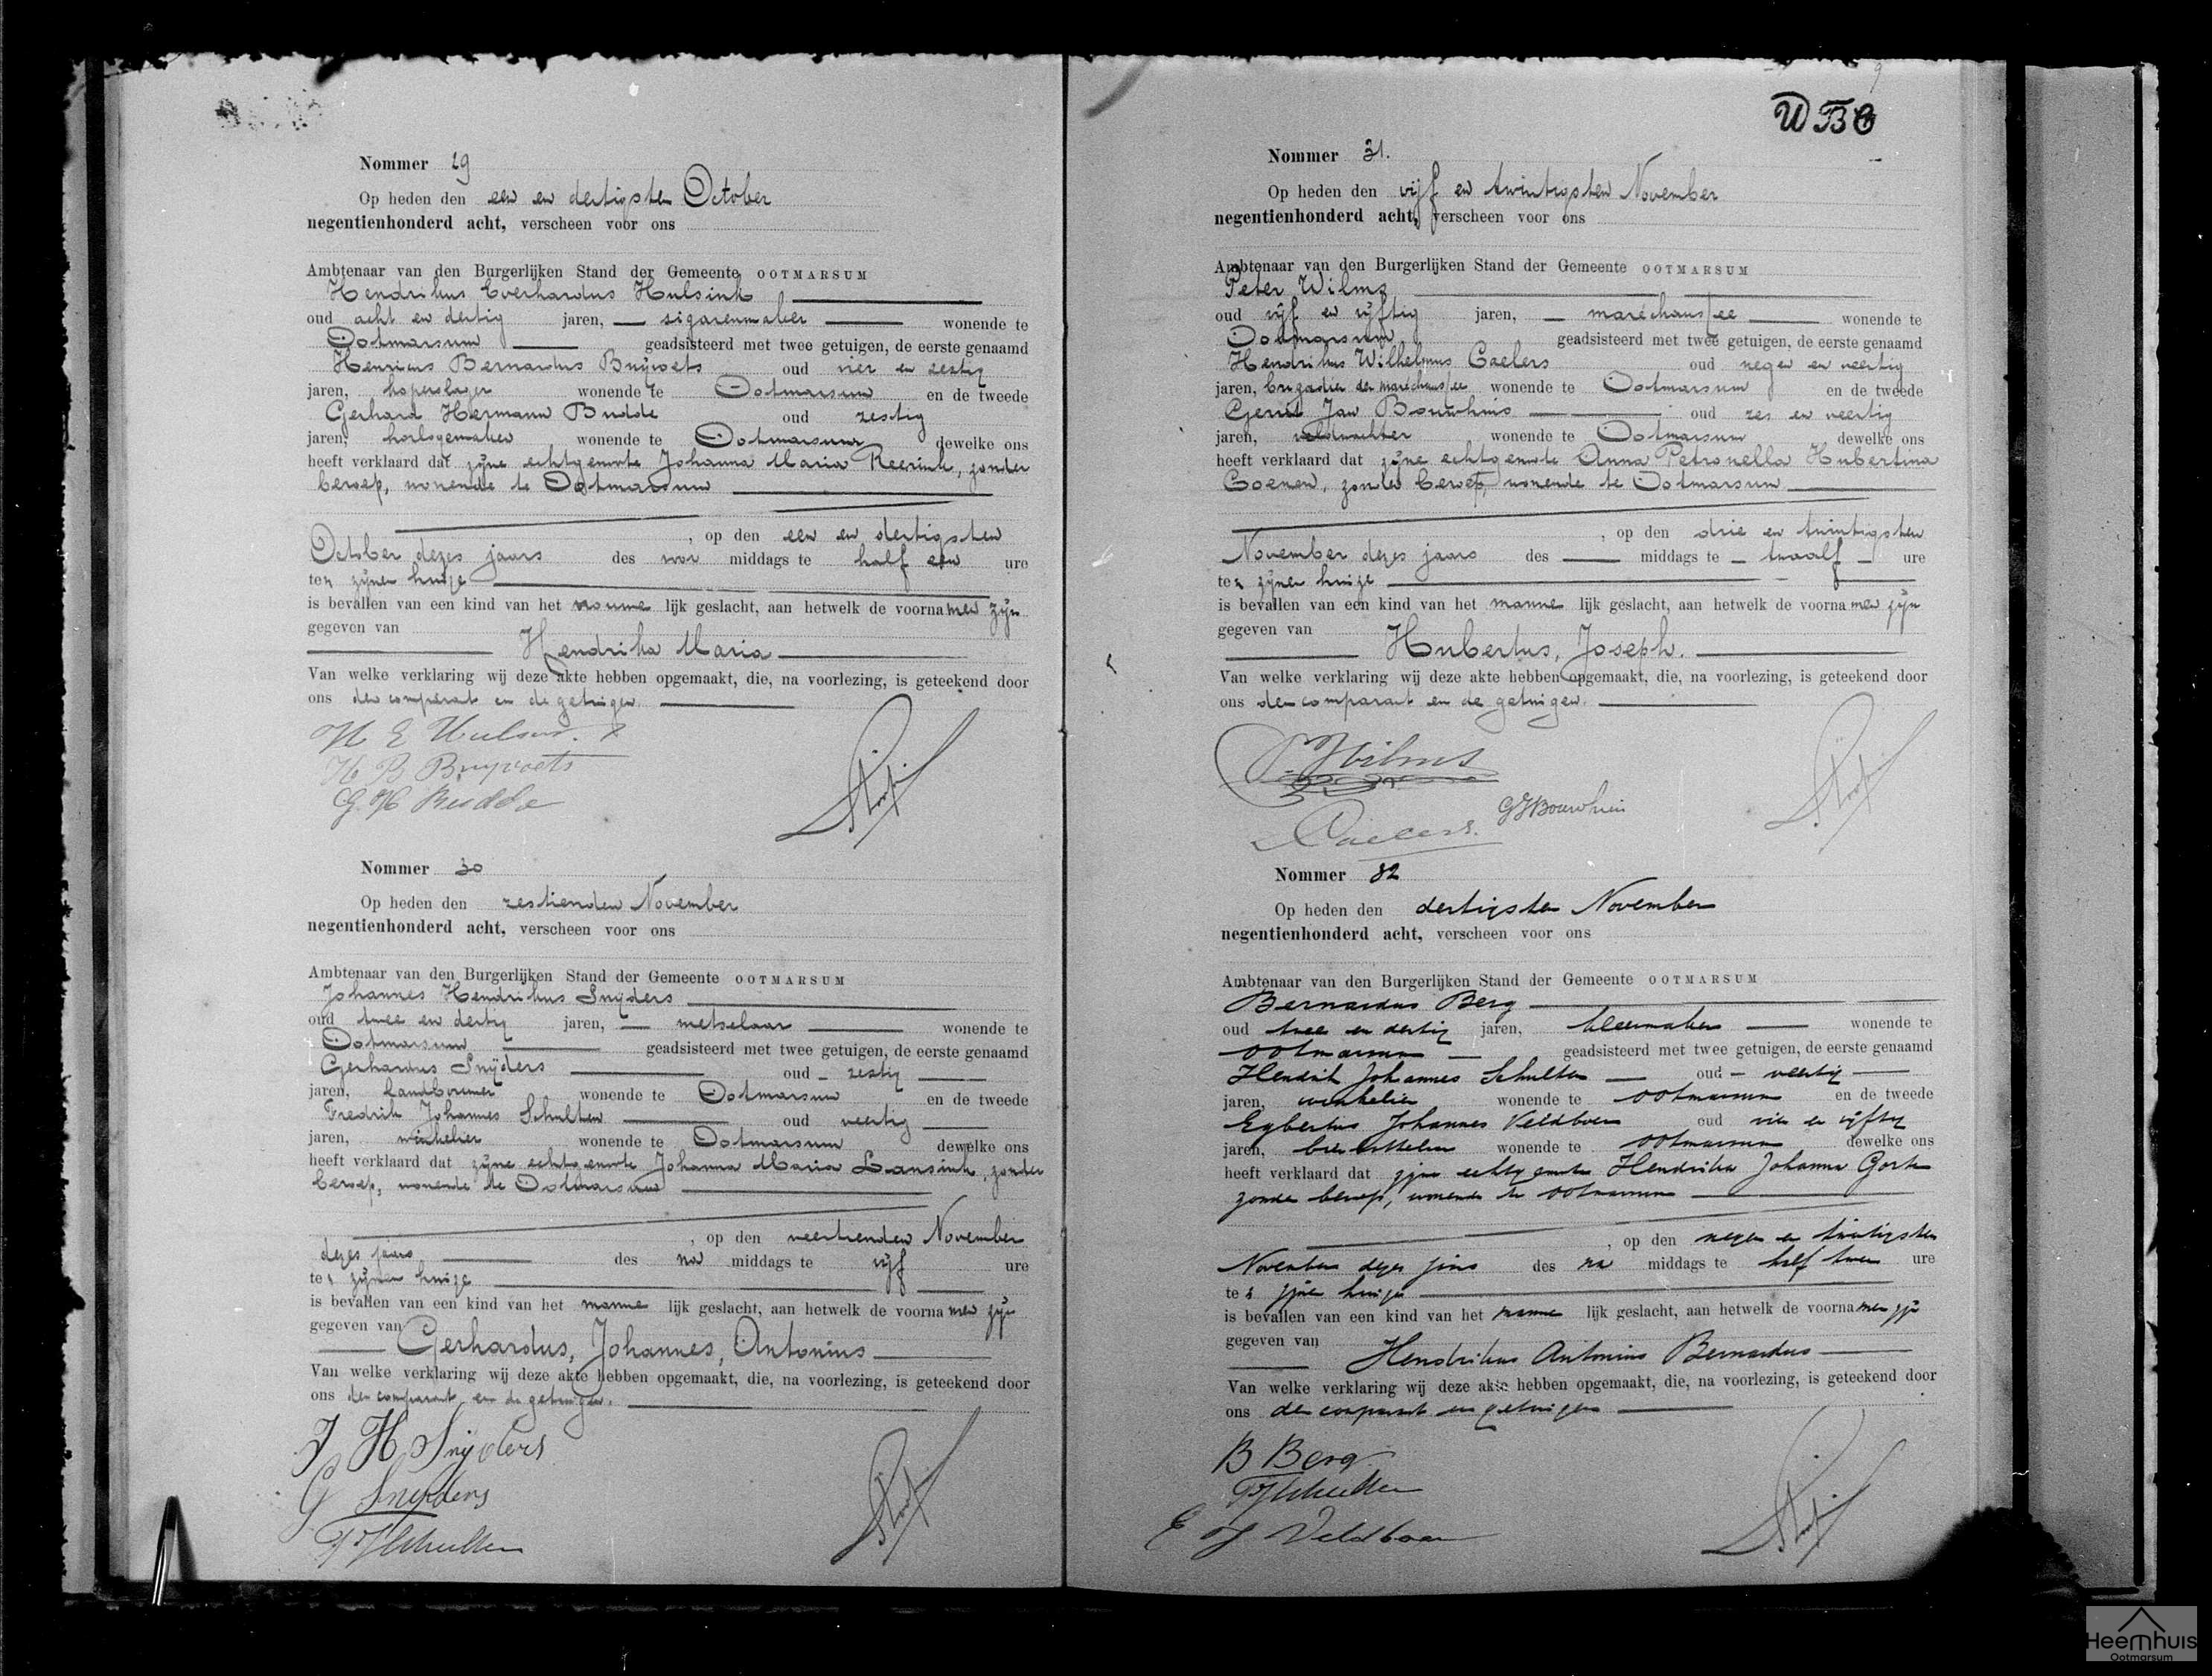 Nommer 29
Op heden den een en dertigsten October
negentienhonderd acht, verscheen voor ons
Ambtenaar van den Burgerlijken Stand der Gemeente OOTMARSUM
Hendrikus Everhardus Hulsink
oud acht en dertig jaren, sigarenmaker wonende te
Ootmarsum geadsisteerd met twee getuigen, de eerste genaamd
Henricus Bernardus Bruyvoets oud vier en zestig
jaren, koperslager wonende te Ootmarsum en de tweede
Gerhard Hermann Budde oud zestig
jaren, horlogemaker wonende te Ootmarsum dewelke ons
heeft verklaard dat zijne echtgenoote Johanna Maria Reerink, zonder
beroep, wonende te Ootmarsum
, op den een en dertigsten
October dezes jaars des voor middags te half een ure
ter zijner huize
is bevallen van een kind van het vrouwe lijk geslacht, aan hetwelk de voorna men zijn
gegeven van
Hendrika Maria
Van welke verklaring wij deze akte hebben opgemaakt, die, na voorlezing, is geteekend door
ons den comparant en de getuigen.
H E Hulsink
H B Bruyvoets
G. H. Budde
Nommer 30
Op heden den zestienden November
negentienhonderd acht, verscheen voor ons
Ambtenaar van den Burgerlijken Stand der Gemeente OOTMARSUM
Johannes Hendrikus Snijders
oud twee en dertig jaren, metselaar wonende te
Ootmarsum geadsisteerd met twee getuigen, de eerste genaamd
Gerhardus Snijders oud zestig
jaren, landbouwer wonende te Ootmarsum en de tweede
Fredrik Johannes Schulten oud veertig
jaren, winkelier wonende te Ootmarsum dewelke ons
heeft verklaard dat zijne echtgenoote Johanna Maria Lansink, zonder
beroep, wonende te Ootmarsum
, op den veertienden November
dezes jaars des na middags te vijf ure
ter zijner huize
is bevallen van een kind van het manne lijk geslacht, aan hetwelk de voorna men zijn
gegeven van
Gerhardus, Johannes, Antonius
Van welke verklaring wij deze akte hebben opgemaakt, die, na voorlezing, is geteekend door
ons den comparant en de getuigen.
J H Snijders
G Snijders
F J Schulten
WBC
Nommer 31.
Op heden den vijf en twintigsten November
negentienhonderd acht, verscheen voor ons
Ambtenaar van den Burgerlijken Stand der Gemeente OOTMARSUM
Peter Wilms
oud vijf en vijftig jaren, maréchaussee wonende te
Ootmarsum geadsisteerd met twee getuigen, de eerste genaamd
Hendrikus Wilhelmus Caelers oud negen en veertig
jaren, brigadier der maréchaussee wonende te Ootmarsum en de tweede
Gerrit Jan Bouwhuis oud zes en veertig
jaren, veldwachter wonende te Ootmarsum dewelke ons
heeft verklaard dat zijne echtgenoote Anna Petronella Hubertina
Coenen, zonder beroep, wonende te Ootmarsum
, op den drie en twintigsten
November dezes jaars des middags te twaalf ure
ter zijner huize
is bevallen van een kind van het manne lijk geslacht, aan hetwelk de voorna men zijn
gegeven van
Hubertus, Joseph.
Van welke verklaring wij deze akte hebben opgemaakt, die, na voorlezing, is geteekend door
ons den comparant en de getuigen.
P. Wilms
GJ Bouwhuis
Caelers.
Nommer 32
Op heden den dertigsten November
negentienhonderd acht, verscheen voor ons
Ambtenaar van den Burgerlijken Stand der Gemeente OOTMARSUM
Bernardus Berg
oud twee en dertig jaren, kleermaker wonende te
Ootmarsum geadsisteerd met twee getuigen, de eerste genaamd
Hendrik Johannes Schulten oud veertig
jaren, winkelier wonende te Ootmarsum en de tweede
Egbertus Johannes Veldboer oud vier en vijftig
jaren, wonende te Ootmarsum dewelke ons
heeft verklaard dat zijne echtgenoote Hendrika Johanna
zonder beroep, wonende te Ootmarsum
, op den negen en twintigsten
November dezes jaars des na middags te half twee ure
ter zijner huize
is bevallen van een kind van het manne lijk geslacht, aan hetwelk de voorna men zijn
gegeven van
Hendrikus Antonius Bernardus
Van welke verklaring wij deze akte hebben opgemaakt, die, na voorlezing, is geteekend door
ons den comparant en getuigen
B Berg
F J Schulten
E J Veldboer
Heemhuis
Ootmarsum